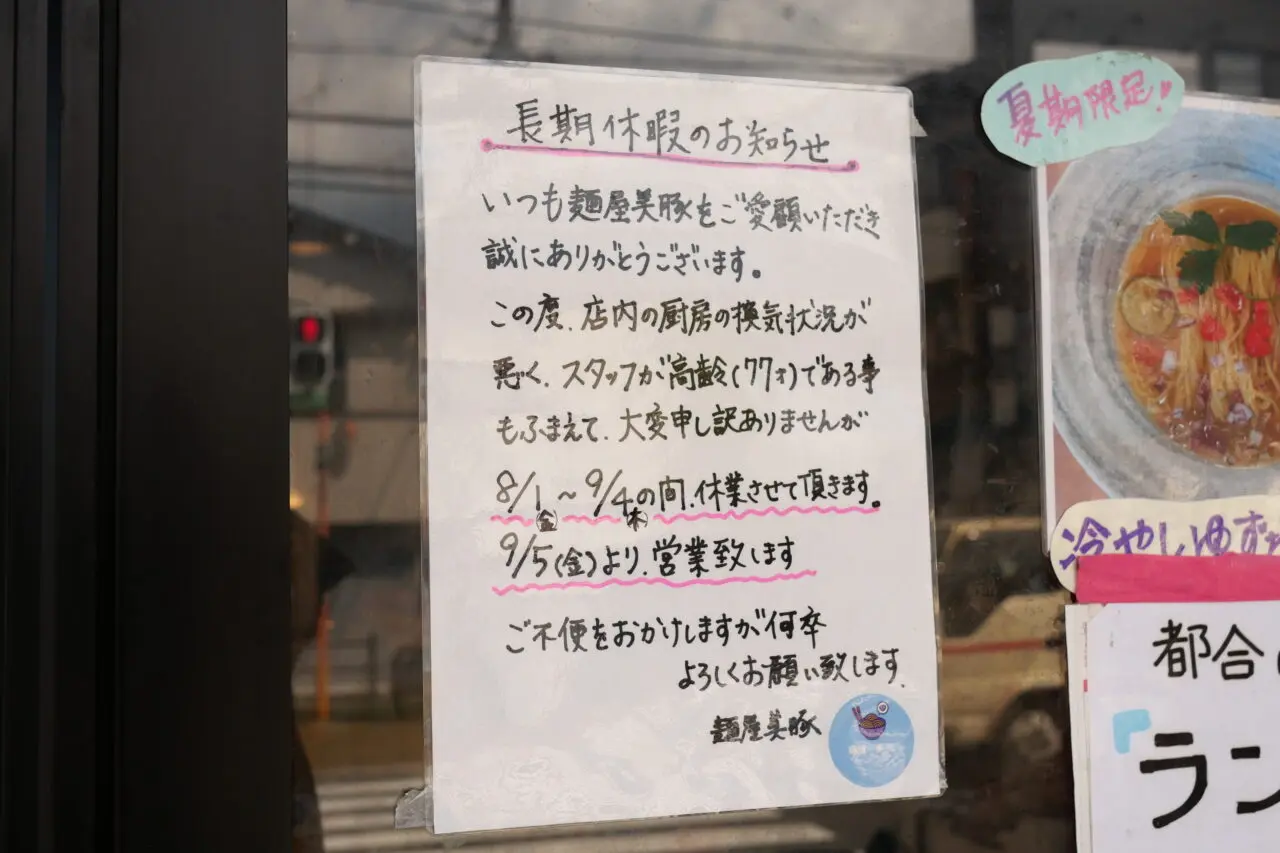 長期休暇のお知らせ
いつも麺屋美豚をご愛顧いただき
誠にありがとうございます。
この度、店内の厨房の換気状況が
悪く、スタッフが高齢(77才)である事
もふまえて、大変申し訳ありませんが
8/1金~9/4木の間、休業させて頂きます。
9/5(金)より、営業致します
ご不便をおかけしますが何卒
よろしくお願い致します.
麺屋美豚
夏期限定!
冷やしゆず
都合
「ラン